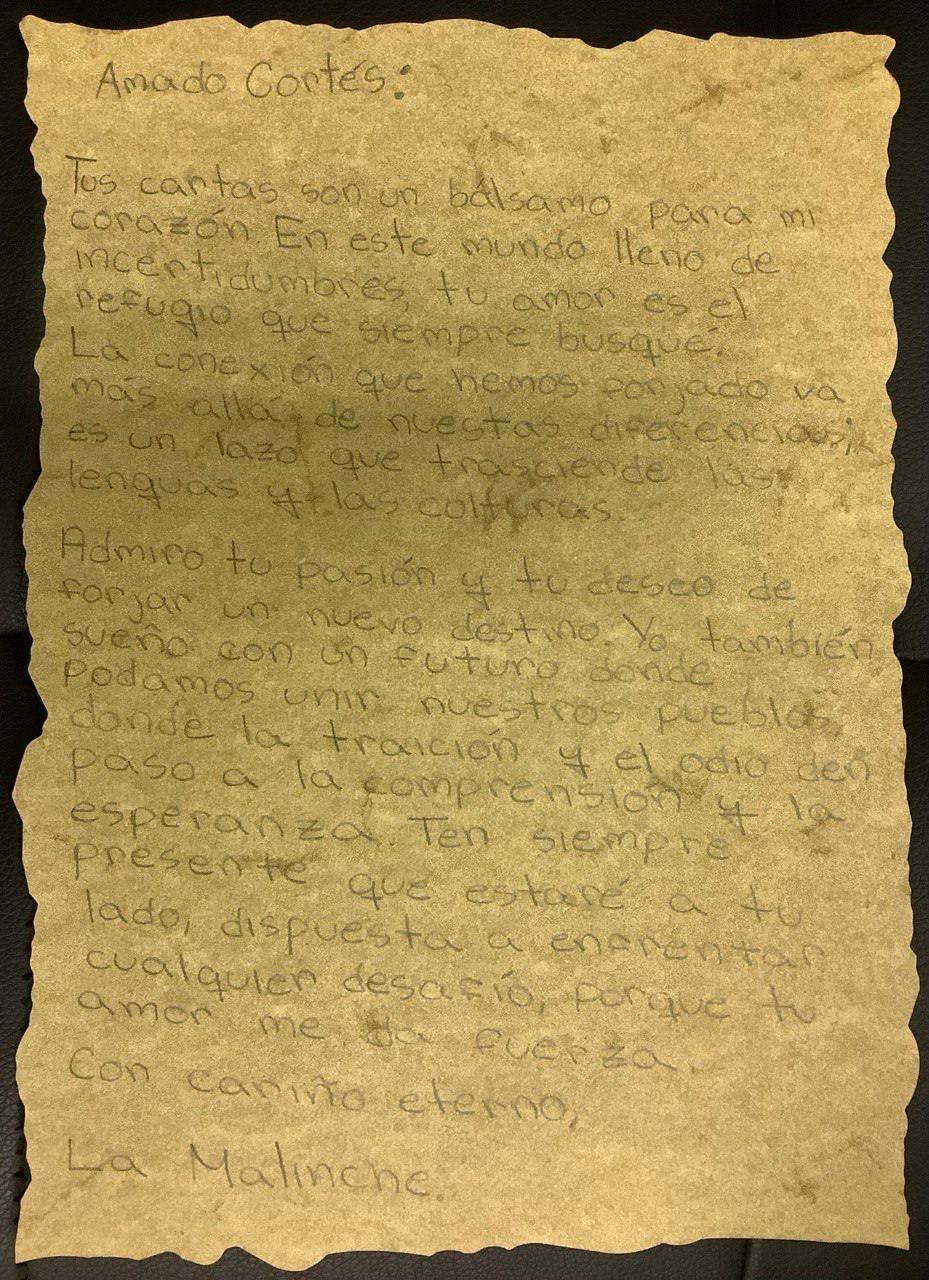 Amado Cortés:
Tus cartas son un bálsamo para mi
corazón. En este mundo lleno de
incertidumbres, tu amor es el
refugio que siempre busqué.
La conexión que hemos forjado va
más allá de nuestas diferencias;
es un lazo que trasciende las
lenguas y las culturas.
Admiro tu pasión y tu deseo de
forjar un nuevo destino. Yo también
sueño con un futuro donde
podamos unir nuestros pueblos,
donde la traición y el odio den
paso a la comprensión y la
esperanza. Ten siempre
presente que estaré a tu
lado, dispuesta a enfrentar
cualquier desafío, porque tu
amor me da fuerza.
Con cariño eterno,
La Malinche.